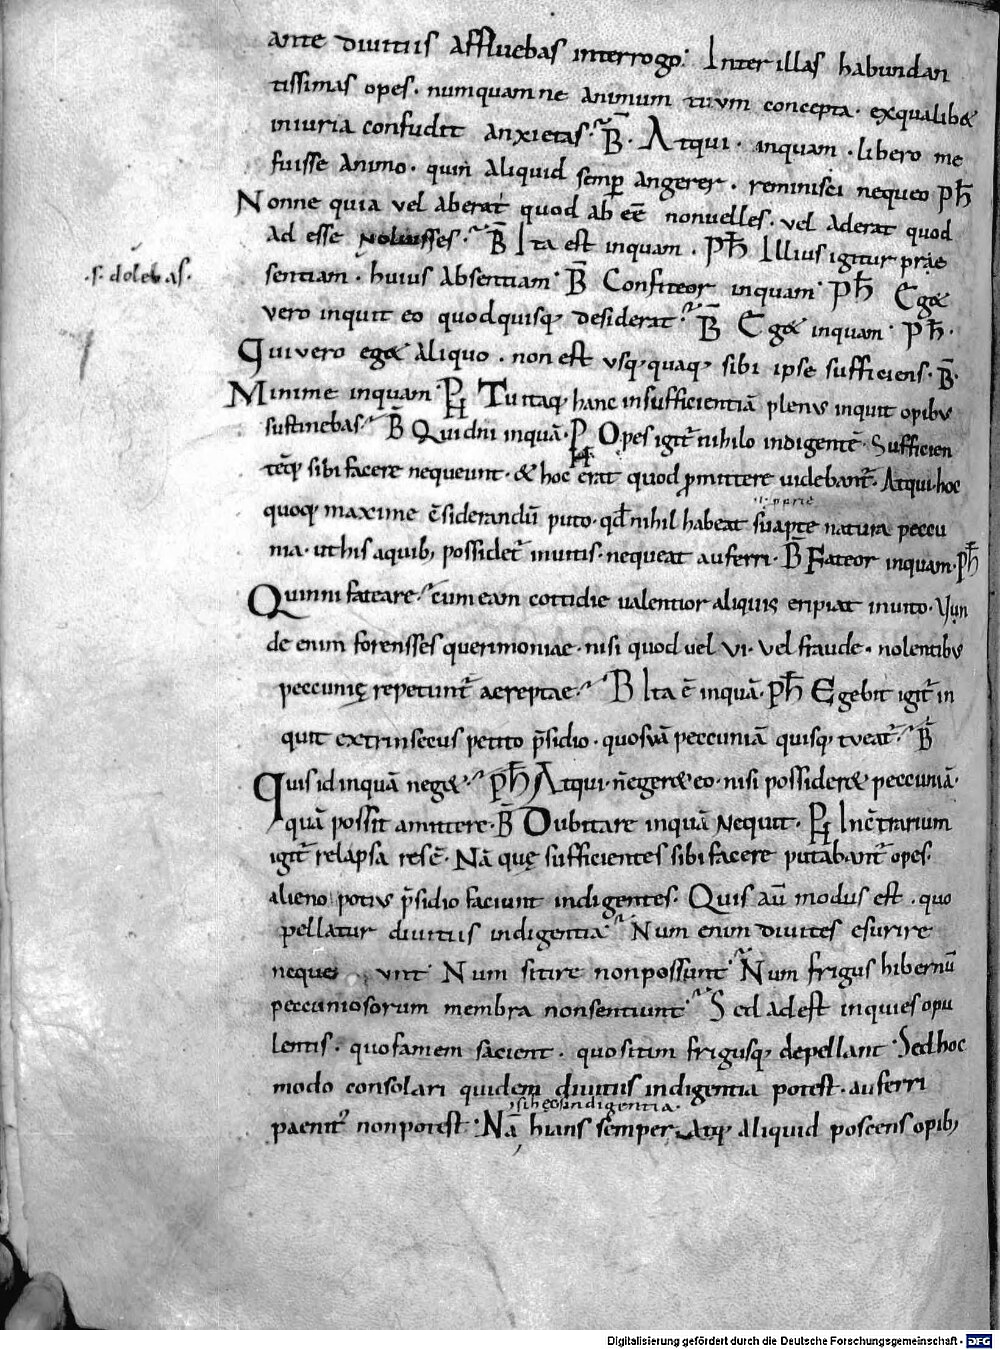 ante diuitiis affluebas interrogo. Inter illas habundan
tissimas opes. numquamne animum tuum concepta. exqualib&
iniuria confudit anxietas. B̅. Atqui. inquam. libero me
fuisse animo. quin aliquid semp̄ angerer. reminisci nequeo Ph̄
Nonne quia vel aberat quod ab eē nonuelles. vel aderat quod
ad esse noluisses. B̅ Ita est inquam. Ph̄ Illius igitur prae
.s. dolebas.
sentiam. huius absentiam. B̅ Confiteor inquam. Ph̄ Eg&
vero inquit eo quodquisq; desiderat. B̅ Eg& inquam. Ph̄.
Qui vero eg& aliquo. non est usq;quaq; sibi ipse sufficiens. B̅.
Minime inquam. PH Tu itaq; hanc insufficientiā plenus inquit opibus
sustinebas. B̅ Quidni inquā. PH Opes igit̄ nihilo indigentē. Sufficien
tēq; sibi facere nequeunt. & hoc erat quod p̄mittere uidebant̄. Atqui hoc
quoq; maxime c̄siderandū puto. qđ nihil habeat suapte natura peccu
nia. ut his aquib; possidet̄ inuitis. nequeat auferri. B̅ Fateor inquam. Ph̄
Quinni fateare. cum eam cottidie ualentior aliquis eripiat inuito. Vn
de enim forensses querimoniae. nisi quod uel vi. vel fraude. nolentibus
peccunię repetunt̄ aereptae. B̅ Ita ē inquā. Ph̄ Egebit igit̄ in
quit extrinsecus petito p̄sidio. quo suā peccuniā quisq; tueat̄. B̅
Quis id inquā neg&. Ph̄ Atqui. n̄ eger& eo. nisi possider& peccuniā.
quā possit amittere. B̅ Dubitare inquā Nequit. PH Inc̄trarium
igit̄ relapsa res ē. Nā quę sufficientes sibi facere putabant̄ opes.
alieno potius p̄sidio faciunt indigentes. Quis aū modus est. quo
pellatur diuitiis indigentia. Num enim diuites esurire
nequeunt. Num sitire nonpossunt. Num frigus hibernū
pecuniosorum membra nonsentiunt. Sed adest inquies opu
lentis. quo famem sacient. quo sitim frigusq; depellant. Sed hoc
modo consolari quidem diuitiis indigentia potest. auferri
paenit̄ nonpotest. Nā hians semper atq; aliquid poscens opib;